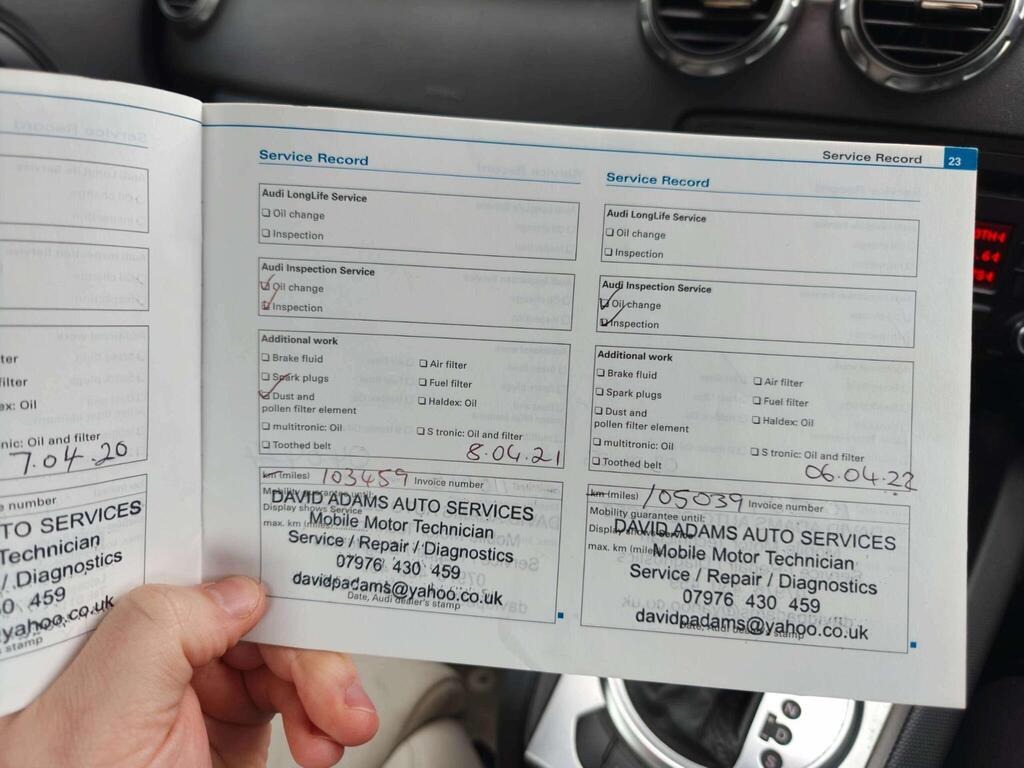 ter
ilter
dex: Oil
nic: Oil and filter
7.04.20
e number
TO SERVICES
Technician
/ Diagnostics
0 459
yahoo.co.uk
s stamp
Service Record
Audi LongLife Service
Oil change
Inspection
Audi Inspection Service
Oil change
Inspection
Additional work
Brake fluid
Air filter
Spark plugs
Fuel filter
Dust and
pollen filter element
Haldex: Oil
multitronic: Oil
S tronic: Oil and filter
Toothed belt
8.04.21
km (miles) 103459 Invoice number
Mobility guarantee until:
DAVID ADAMS AUTO SERVICES
Display shows Service
Mobile Motor Technician
max. km (miles)
Service / Repair / Diagnostics
07976 430 459
davidpadams@yahoo.co.uk
Date, Audi dealer's stamp
Service Record 23
Service Record
Audi LongLife Service
Oil change
Inspection
Audi Inspection Service
Oil change
Inspection
Additional work
Brake fluid
Air filter
Spark plugs
Fuel filter
Dust and
pollen filter element
Haldex: Oil
multitronic: Oil
S tronic: Oil and filter
Toothed belt
06.04.22
km (miles) 105039 Invoice number
Mobility guarantee until:
DAVID ADAMS AUTO SERVICES
Display shows Service
Mobile Motor Technician
max. km (miles
Service / Repair / Diagnostics
07976 430 459
davidpadams@yahoo.co.uk
Date, Audi dealer's stamp
N
D
S